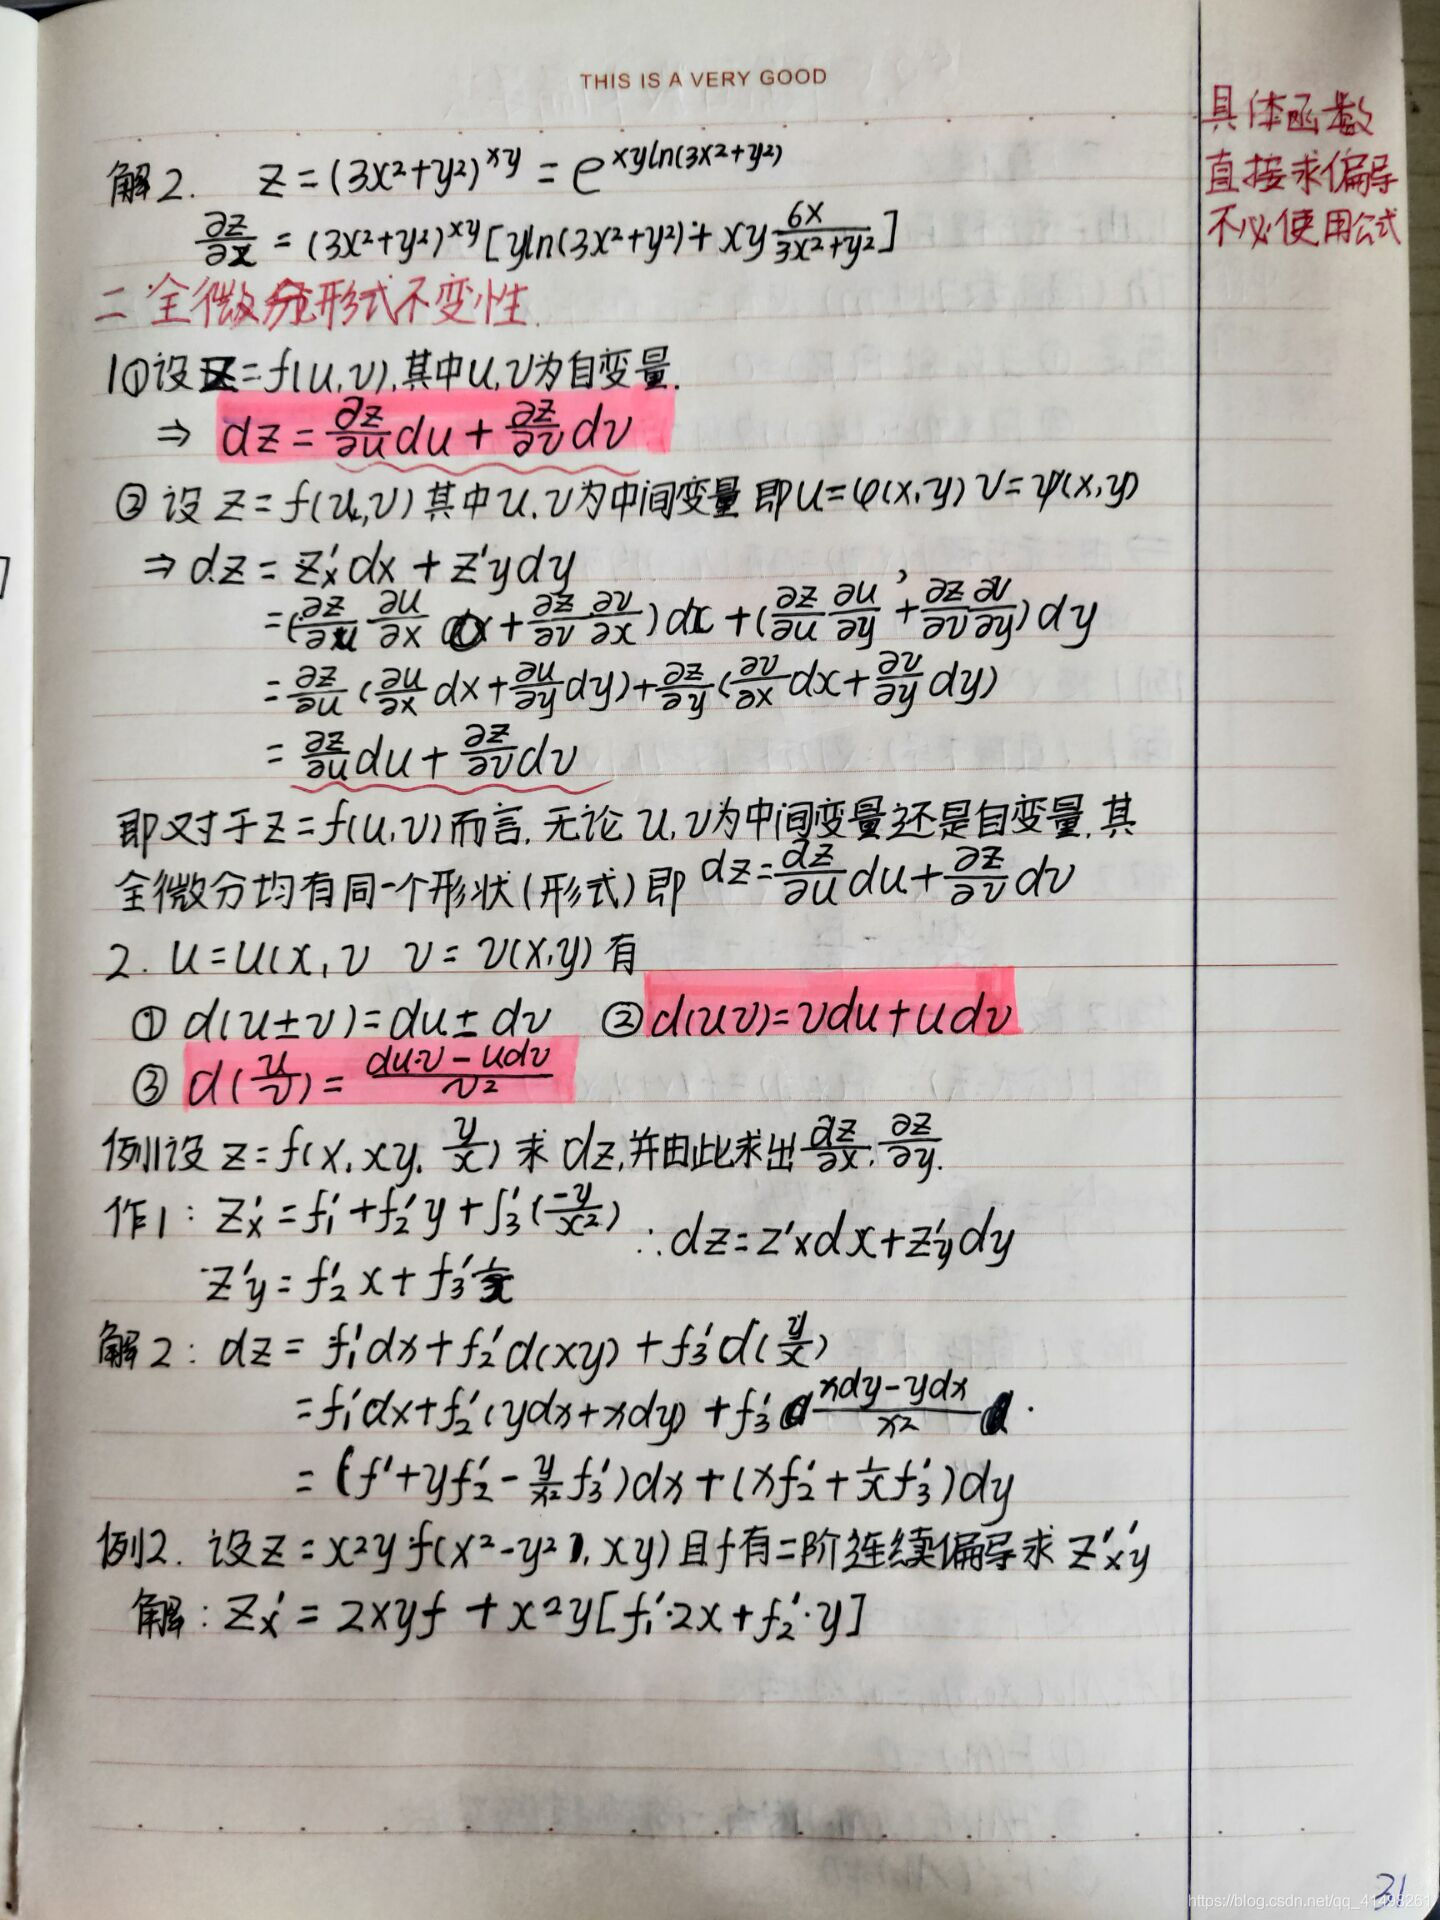 THIS IS A VERY GOOD
具体函数
直接求偏导
不必使用公式
解2. z=(3x²+y²)^xy = e^xyln(3x²+y²)
∂z/∂x = (3x²+y²)^xy [yln(3x²+y²)+ xy 6x/(3x²+y²)]
二.全微分形式不变性.
1①设z=f(u,v),其中u,v为自变量.
⇒ dz = ∂z/∂u du + ∂z/∂v dv
② 设 z=f(u,v) 其中u,v为中间变量 即u=φ(x,y) v=ψ(x,y)
⇒ dz = z'x dx + z'y dy
=(∂z/∂u ∂u/∂x + ∂z/∂v ∂v/∂x) dx + (∂z/∂u ∂u/∂y + ∂z/∂v ∂v/∂y) dy
= ∂z/∂u (∂u/∂x dx + ∂u/∂y dy) + ∂z/∂y (∂v/∂x dx + ∂v/∂y dy)
= ∂z/∂u du + ∂z/∂v dv
即对于z=f(u,v)而言,无论u,v为中间变量还是自变量,其
全微分均有同一个形状(形式)即 dz = dz/∂u du + ∂z/∂v dv
2. u=u(x,v v=v(x,y)有
① d(u±v)=du±dv ② d(uv)=vdu+udv
③ d(u/v)= (du·v-udv)/v²
例1设 z=f(x,xy,y/x) 求 dz,并由此求出 dz/∂x, ∂z/∂y.
作1: z'x = f'1+f'2 y+f'3(-y/x²) ∴dz=z'xdx+z'ydy
z'y = f'2 x+ f'3 1/x
解2: dz = f'1dx+f'2d(xy)+f'3d(y/x)
=f'1dx+f'2(ydx+xdy)+f'3 (xdy-ydx)/x² .
= (f'+yf'2- y/x² f'3)dx+(xf'2+ 1/x f'3)dy
例2. 设z=x²y f(x²-y², xy)且f有二阶连续偏导求 z''xy
解: zx' = 2xyf + x²y[f1'·2x+f2'·y]
31
https://blog.csdn.net/qq_41498261